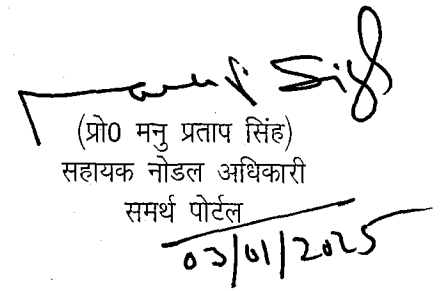 (प्रो0 मनु प्रताप सिंह)
सहायक नोडल अधिकारी
समर्थ पोर्टल
03/01/2025